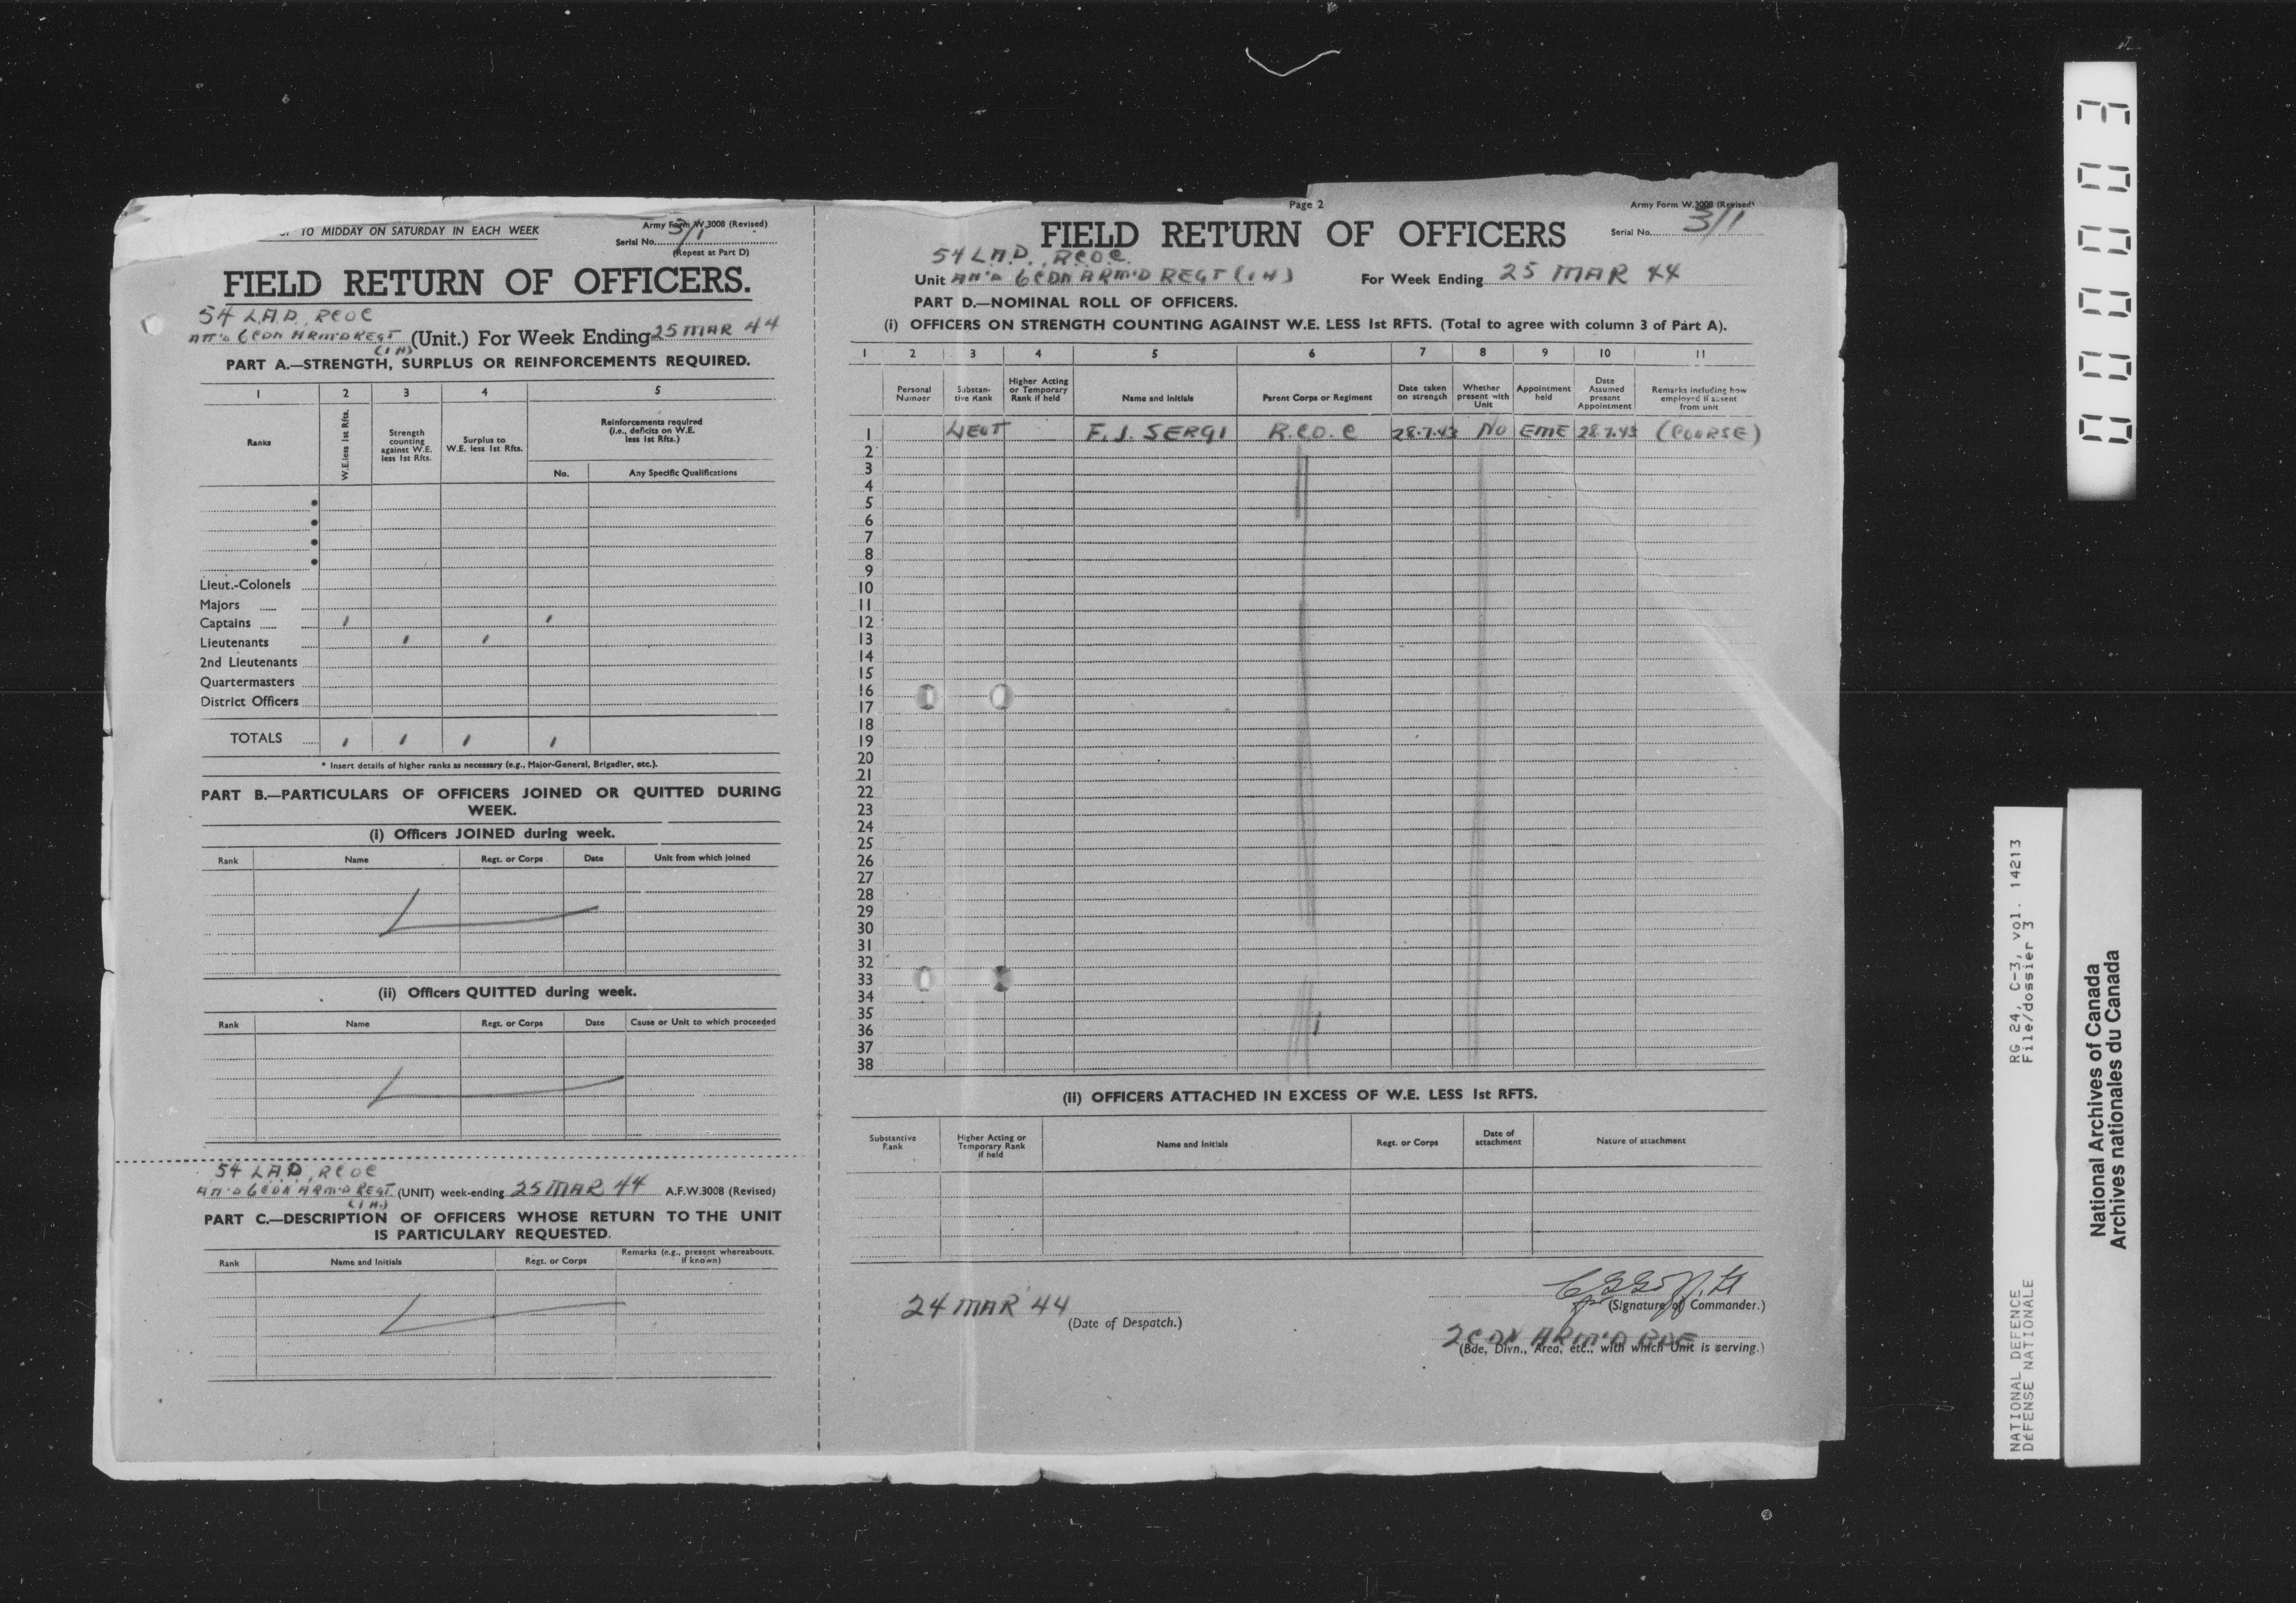 TO MIDDAY ON SATURDAY IN EACH WEEK
Army Form W.3008 (Revised)
Serial No. 3/1
(Repeat at Part D)
FIELD RETURN OF OFFICERS.
54 L.A.D., RCOC
ATT'D 6 CDN ARM'D REGT (Unit.) For Week Ending 25 MAR 44
(1 H)
PART A.—STRENGTH, SURPLUS OR REINFORCEMENTS REQUIRED.
1 2 3 4 5
Ranks
W.E. less 1st Rfts.
Strength counting against W.E. less 1st Rfts.
Surplus to W.E. less 1st Rfts.
Reinforcements required (i.e., deficits on W.E. less 1st Rfts.)
No.
Any Specific Qualifications
Lieut.-Colonels
Majors
Captains 1 1
Lieutenants 1 1
2nd Lieutenants
Quartermasters
District Officers
TOTALS 1 1 1 1
* Insert details of higher ranks as necessary (e.g., Major-General, Brigadier, etc.).
PART B.—PARTICULARS OF OFFICERS JOINED OR QUITTED DURING
WEEK.
(i) Officers JOINED during week.
Rank Name Regt. or Corps Date Unit from which joined
(ii) Officers QUITTED during week.
Rank Name Regt. or Corps Date Cause or Unit to which proceeded
54 LAD, RCOC
ATT'D 6 CDN ARM'D REGT. (UNIT) week-ending 25 MAR 44 A.F.W.3008 (Revised)
(1 H.)
PART C.—DESCRIPTION OF OFFICERS WHOSE RETURN TO THE UNIT
IS PARTICULARY REQUESTED.
Rank Name and Initials Regt. or Corps Remarks (e.g., present whereabouts, if known)
Page 2
Army Form W.3008 (Revised)
Serial No. 3/1
FIELD RETURN OF OFFICERS
54 L.A.D., RCOC.
Unit ATT'D 6 CDN ARM'D REGT (1 H) For Week Ending 25 MAR 44
PART D.—NOMINAL ROLL OF OFFICERS.
(i) OFFICERS ON STRENGTH COUNTING AGAINST W.E. LESS 1st RFTS. (Total to agree with column 3 of Part A).
1 2 3 4 5 6 7 8 9 10 11
Personal Number
Substantive Rank
Higher Acting or Temporary Rank if held
Name and Initials
Parent Corps or Regiment
Date taken on strength
Whether present with Unit
Appointment held
Date Assumed present Appointment
Remarks including how employed if absent from unit
1 LIEUT F. J. SERGI R.C.O.C 28.7.43 NO EME 28.7.43 (COURSE)
2
3
4
5
6
7
8
9
10
11
12
13
14
15
16
17
18
19
20
21
22
23
24
25
26
27
28
29
30
31
32
33
34
35
36
37
38
(ii) OFFICERS ATTACHED IN EXCESS OF W.E. LESS 1st RFTS.
Substantive Rank
Higher Acting or Temporary Rank if held
Name and Initials
Regt. or Corps
Date of attachment
Nature of attachment
24 MAR 44
(Date of Despatch.)
for (Signature of Commander.)
2 CDN ARM'D BDE
(Bde, Divn., Area, etc., with which Unit is serving.)
00003
RG 24, C-3, vol. 14213
File/dossier 3
NATIONAL DEFENCE
DÉFENSE NATIONALE
National Archives of Canada
Archives nationales du Canada